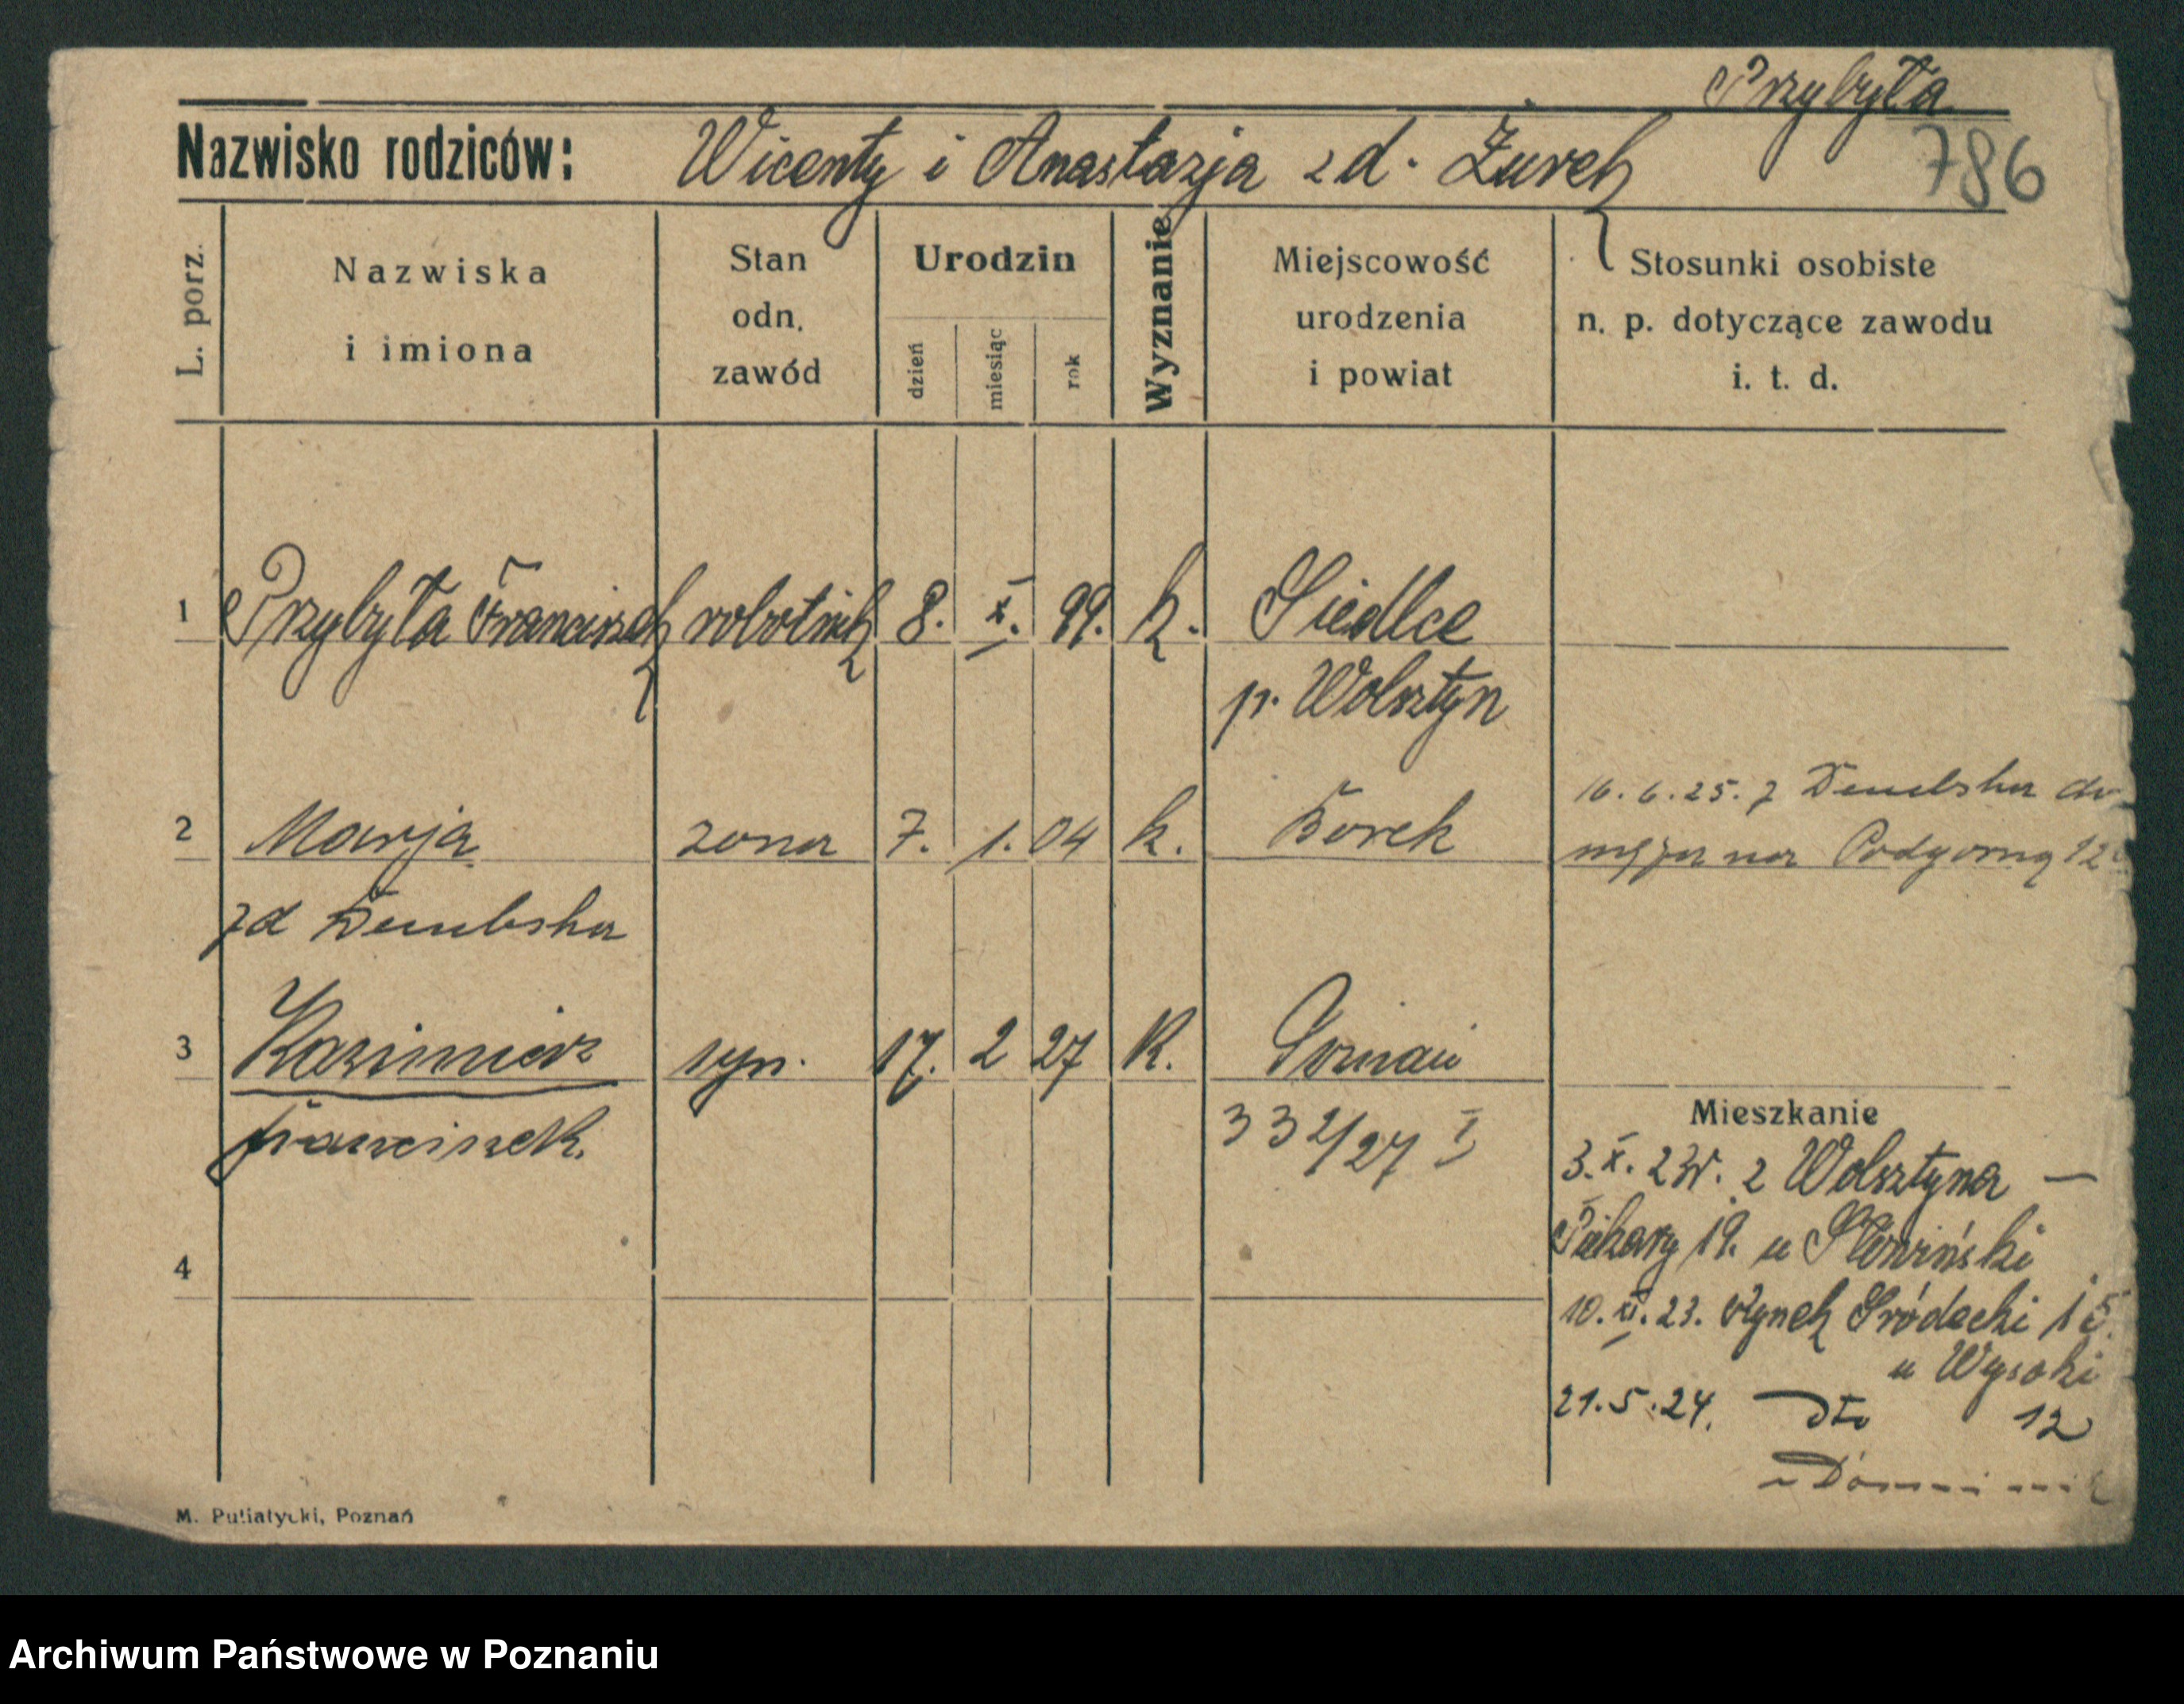 Przybyła
Nazwisko rodziców: Wicenty i Anastazja zd. Żurek 786
L. porz. Nazwiska i imiona Stan odn. zawód Urodzin dzień miesiąc rok Wyznanie Miejscowość urodzenia i powiat Stosunki osobiste n. p. dotyczące zawodu i. t. d.
1 Przybyła Franciszek robotnik 8. X. 99. k. Siedlce
p. Wolsztyn
16.6.25. z Dembska do
2 Marja zona 7. 1. 04 k. Borek męża na Podgorną 12
zd Dembska
3 Kazimierz syn. 17. 2 27 K. Poznań
Mieszkanie
Franciszek. 332/27 I
3.X.23r. z Wolsztyna —
Piekary 19. u
4
10.XI.23. Rynek Śródecki 15.
u Wysoki
21.5.24. dto 12
M. Putiatycki, Poznań
Archiwum Państwowe w Poznaniu